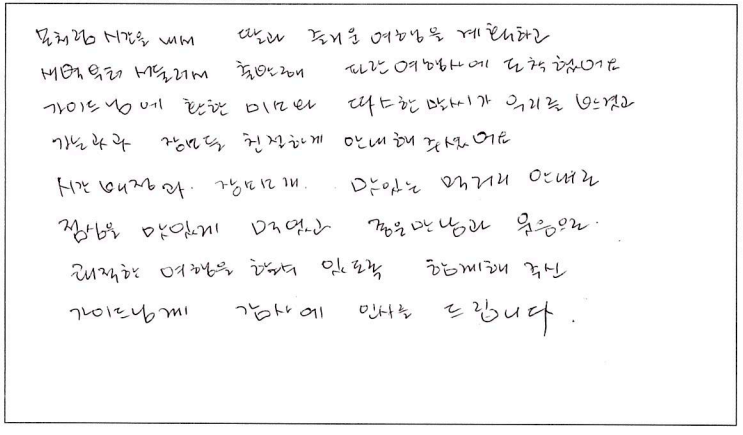 모처럼 시간을 내서 딸과 즐거운 여행을 계획하고
새벽부터 서둘러서 출발해 파란여행사에 도착했어요
가이드님에 환한 미모와 따스한 말씨가 우리를 반겼고
친절하게 안내해 주셨어요
시간 배정과 맛있는 먹거리 안내로
점심을 맛있게 먹었고 좋은만남과 웃음으로.
쾌적한 여행을 할수 있도록 함께해 주신
가이드님께 감사에 인사를 드립니다.